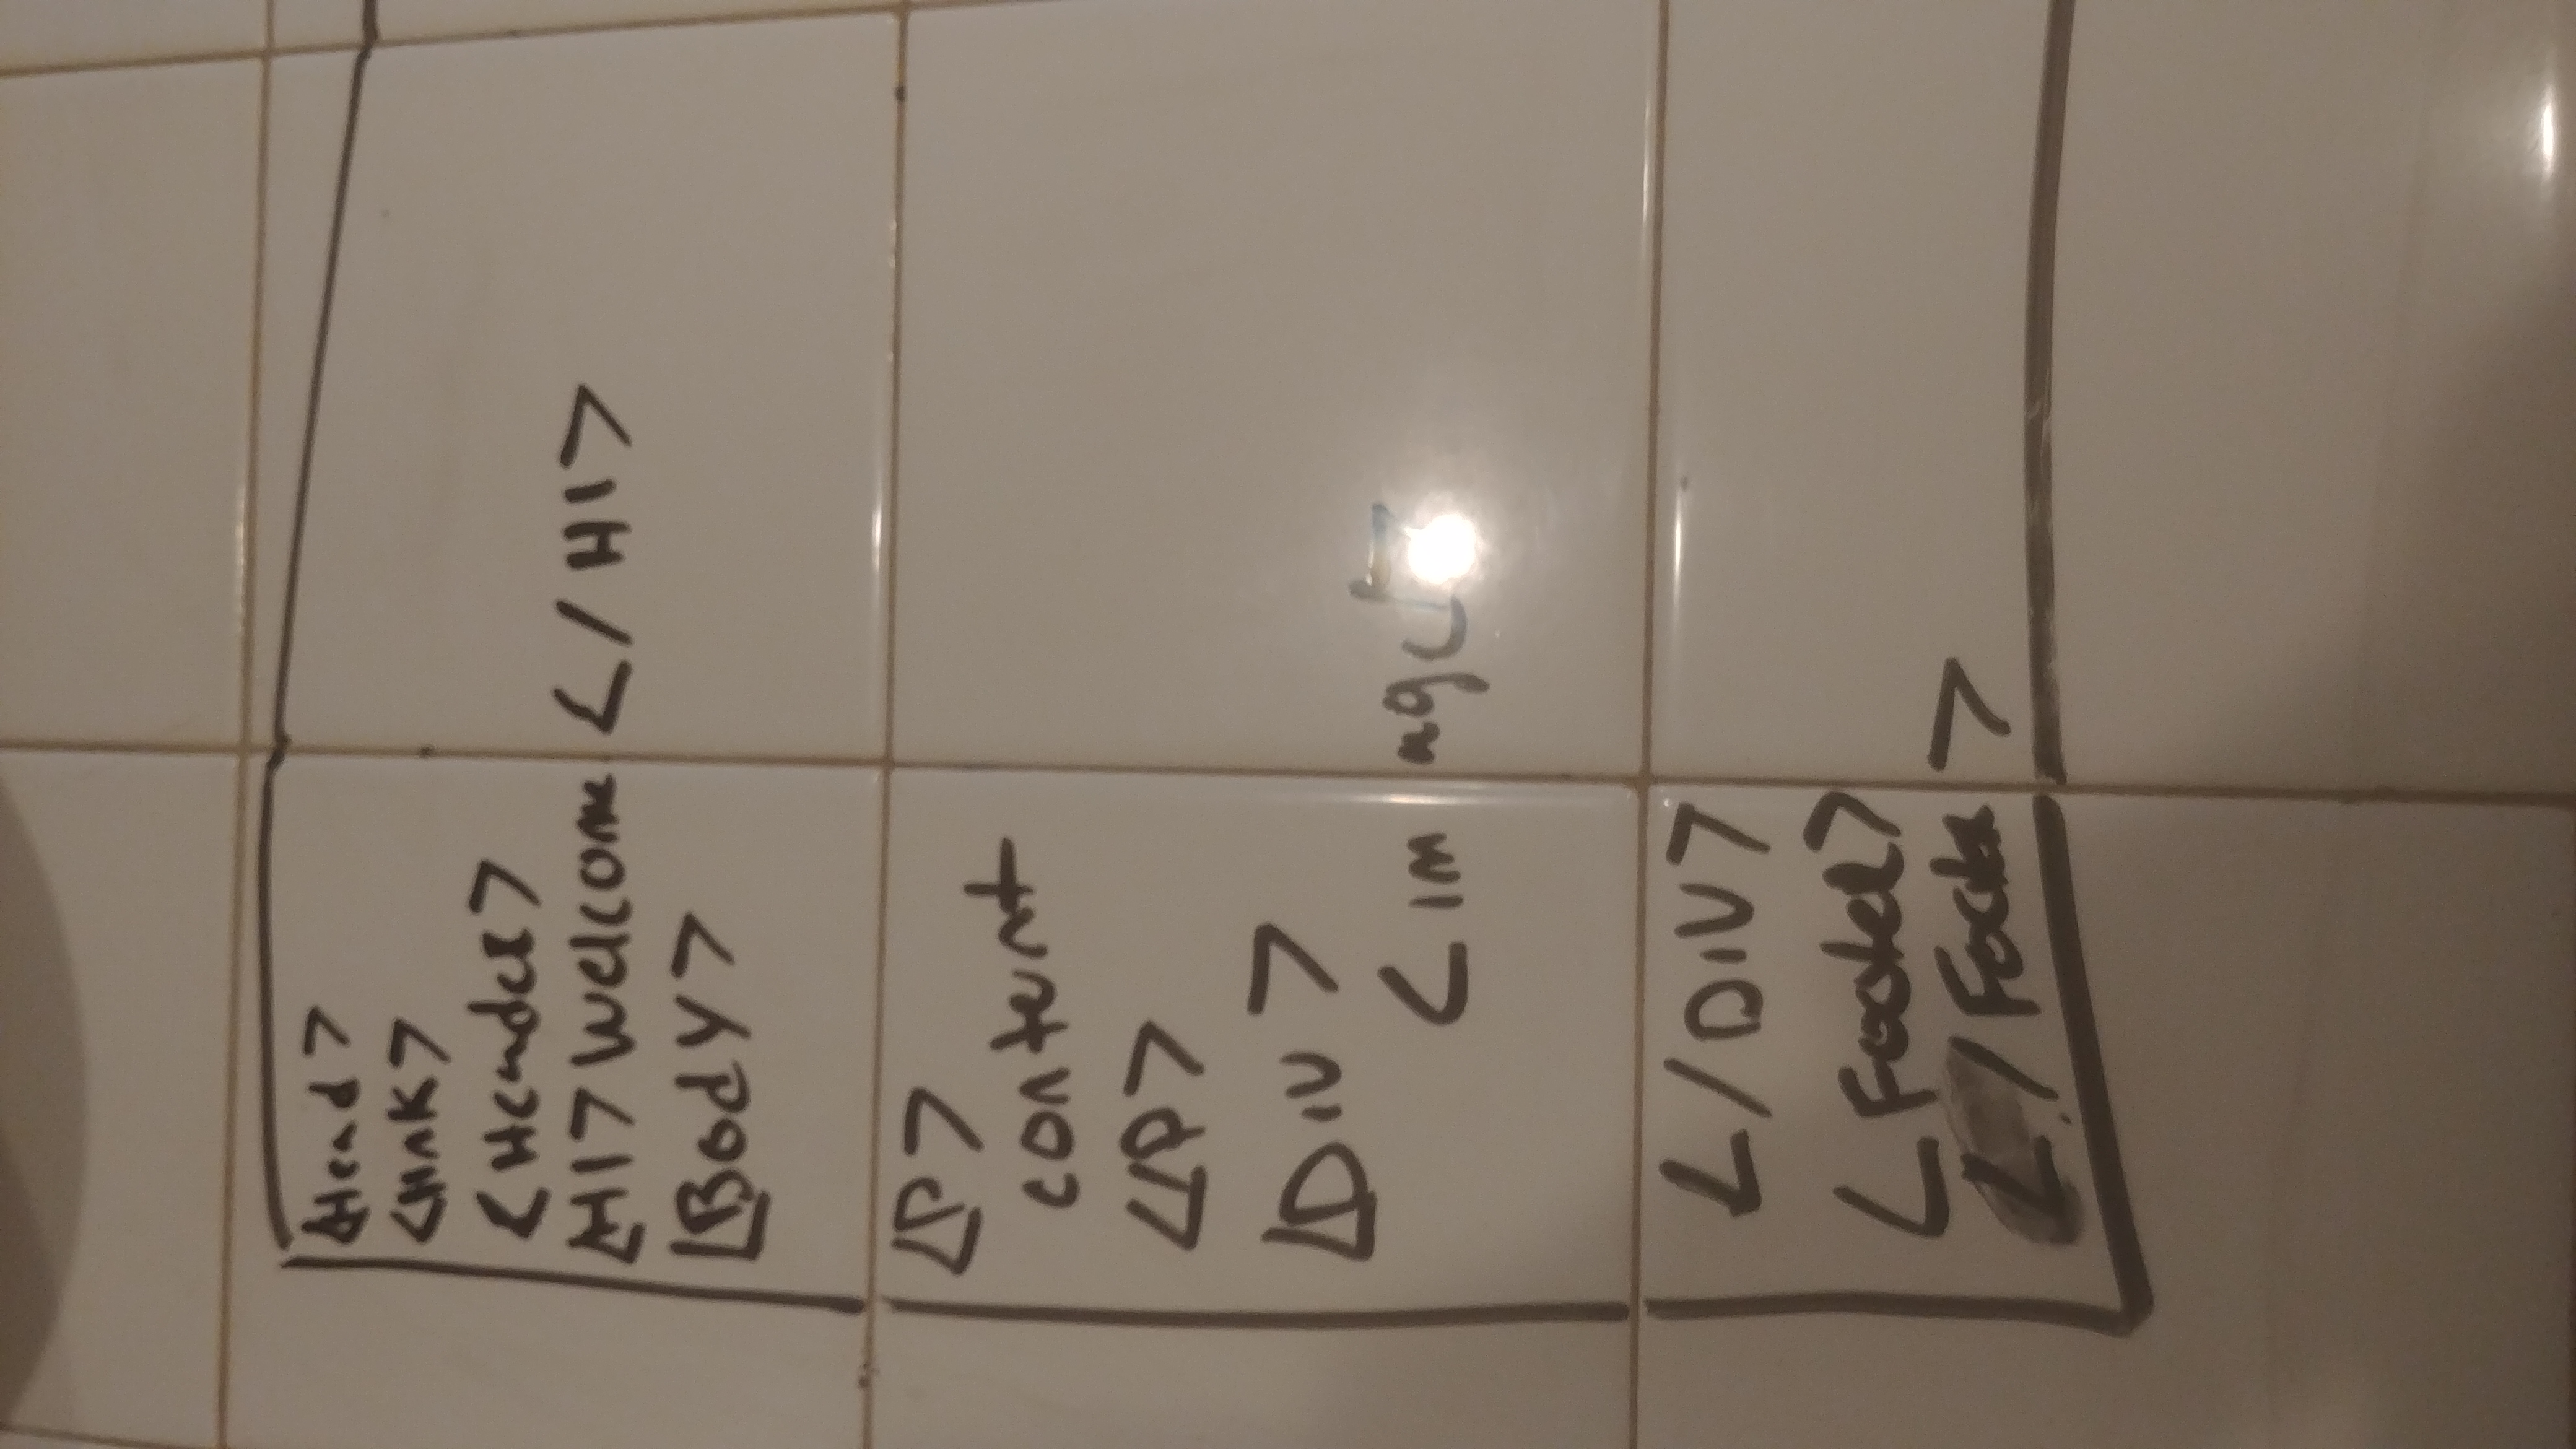 <Head>
<link>
<Header>
<H1>Welcome</H1>
<Body>
<P>
content
</P>
<Div>
<image/>
</Div>
<Footer>
</Footer>